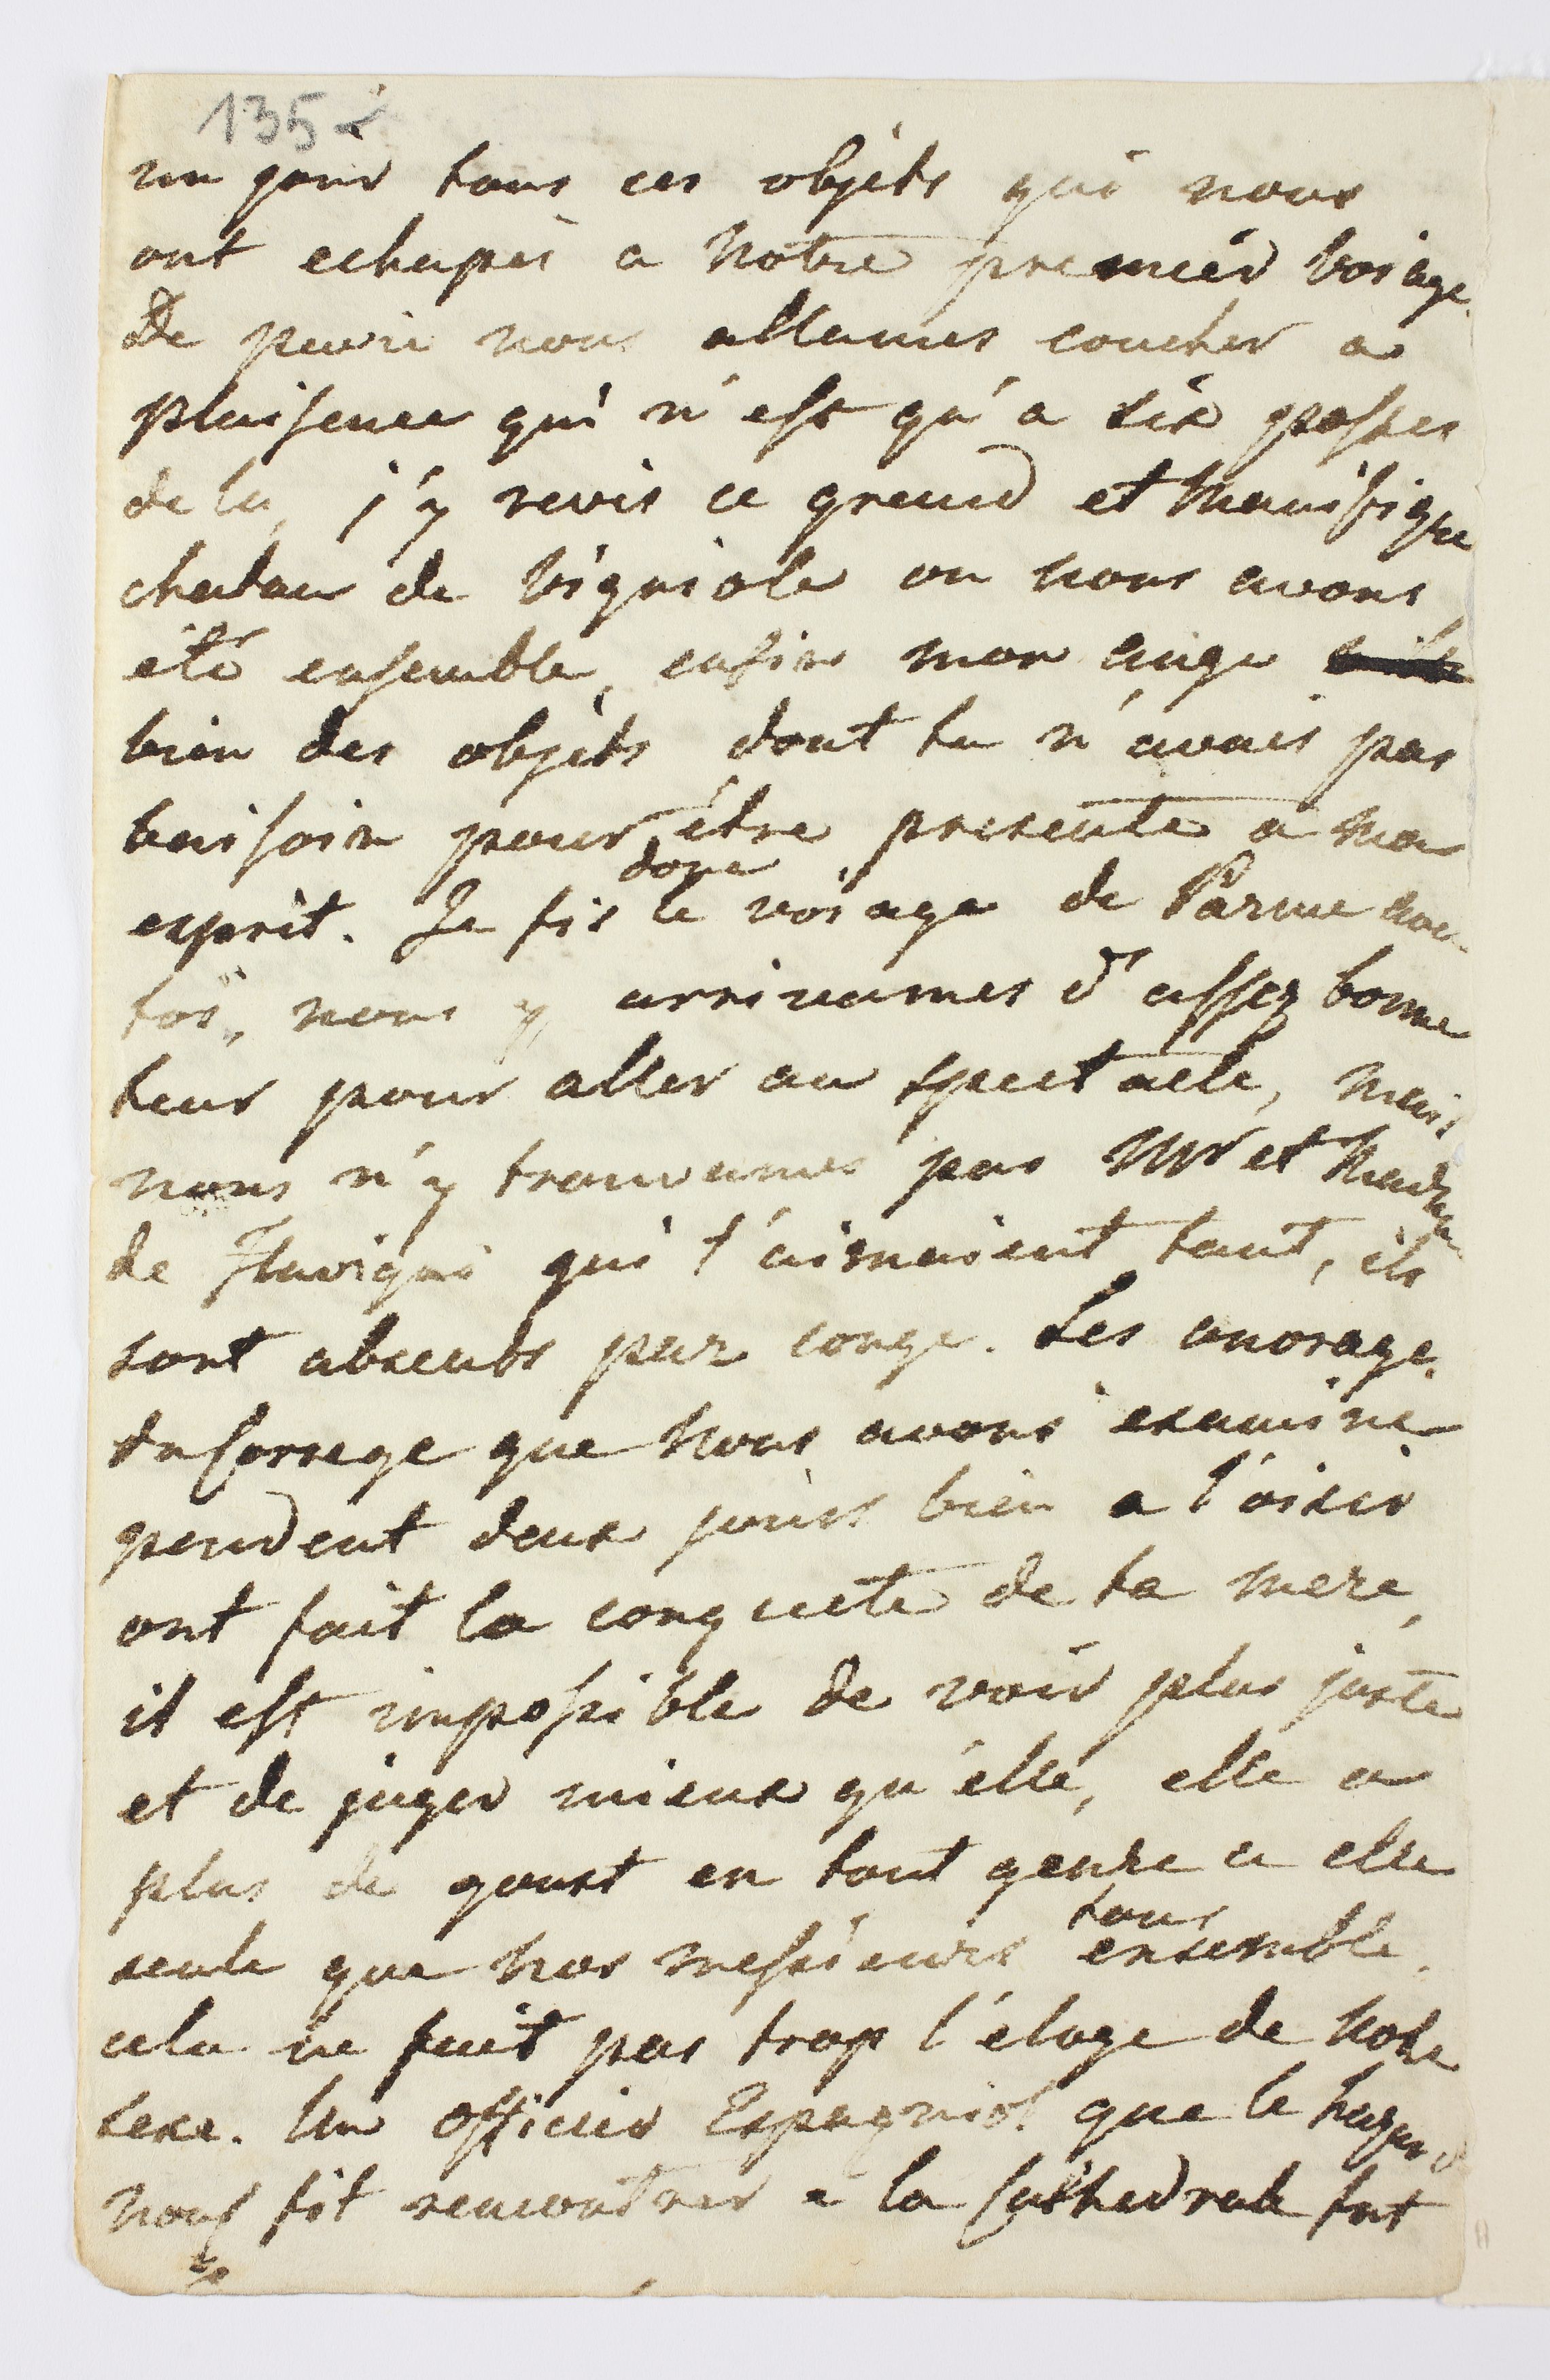 135
un jour tous ces objets qui nous
ont echapés a notre premier voiage.
De pavie nous allames coucher a
plaisence qui n'est qu'a six postes
de la, j'y revis ce grand et manifique
chatau de Vigniole ou nous avons
été ensemble, enfin mon ange
bien des objets dont tu n'avais pas
baisoin pour être presente a mon
esprit. Je fis donc le voiage de Parme
nous y arrivames d'assez bonne
heur pour aller au spectacle, mais
nous n'y trouvames pas Mr et Madame
de Flavigni qui t'aimaient tant, ils
sont absents par conge. Les ouvrages
du Correge que nous avons examiné
pendent deux jours bien a l'oisir
ont fait la conquete de ta mere,
il est impossible de voir plus juste
et de juger mieux qu'elle, elle a
plus de goust en tout genre a elle
seule que nos messieurs tous ensemble.
cela ne fait pas trop l'éloge de notre
sexe. Un officier Espagniol que le hazard
nous fit rencontrer a la Cathedrale fut